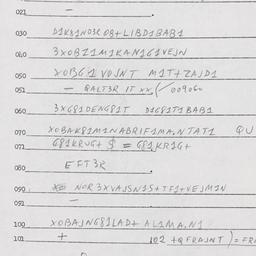 021 —
030 D1K81NO3R OB+LIBD1BAB1
040 3XOBZ1M1KAN1G1VEJN
050 XOBG1 VOJNT M1T+ZAJD1
051 — QALT3R IT XX/ 009060
060 3XG81DENG81T D1G81T1BAB1
070 XOBAK81M1NABRIF1MA,NTAT1 QU
071 G81KRUG+ $ = G81KR1G+
080 EFT3R
090 NOR3XVAJSN1S+TF1+VEJM1N
091 —
100 XOBAJNG81LAD+ AL1MA,N1
101 + 102 +QFRAJNT ) = FR